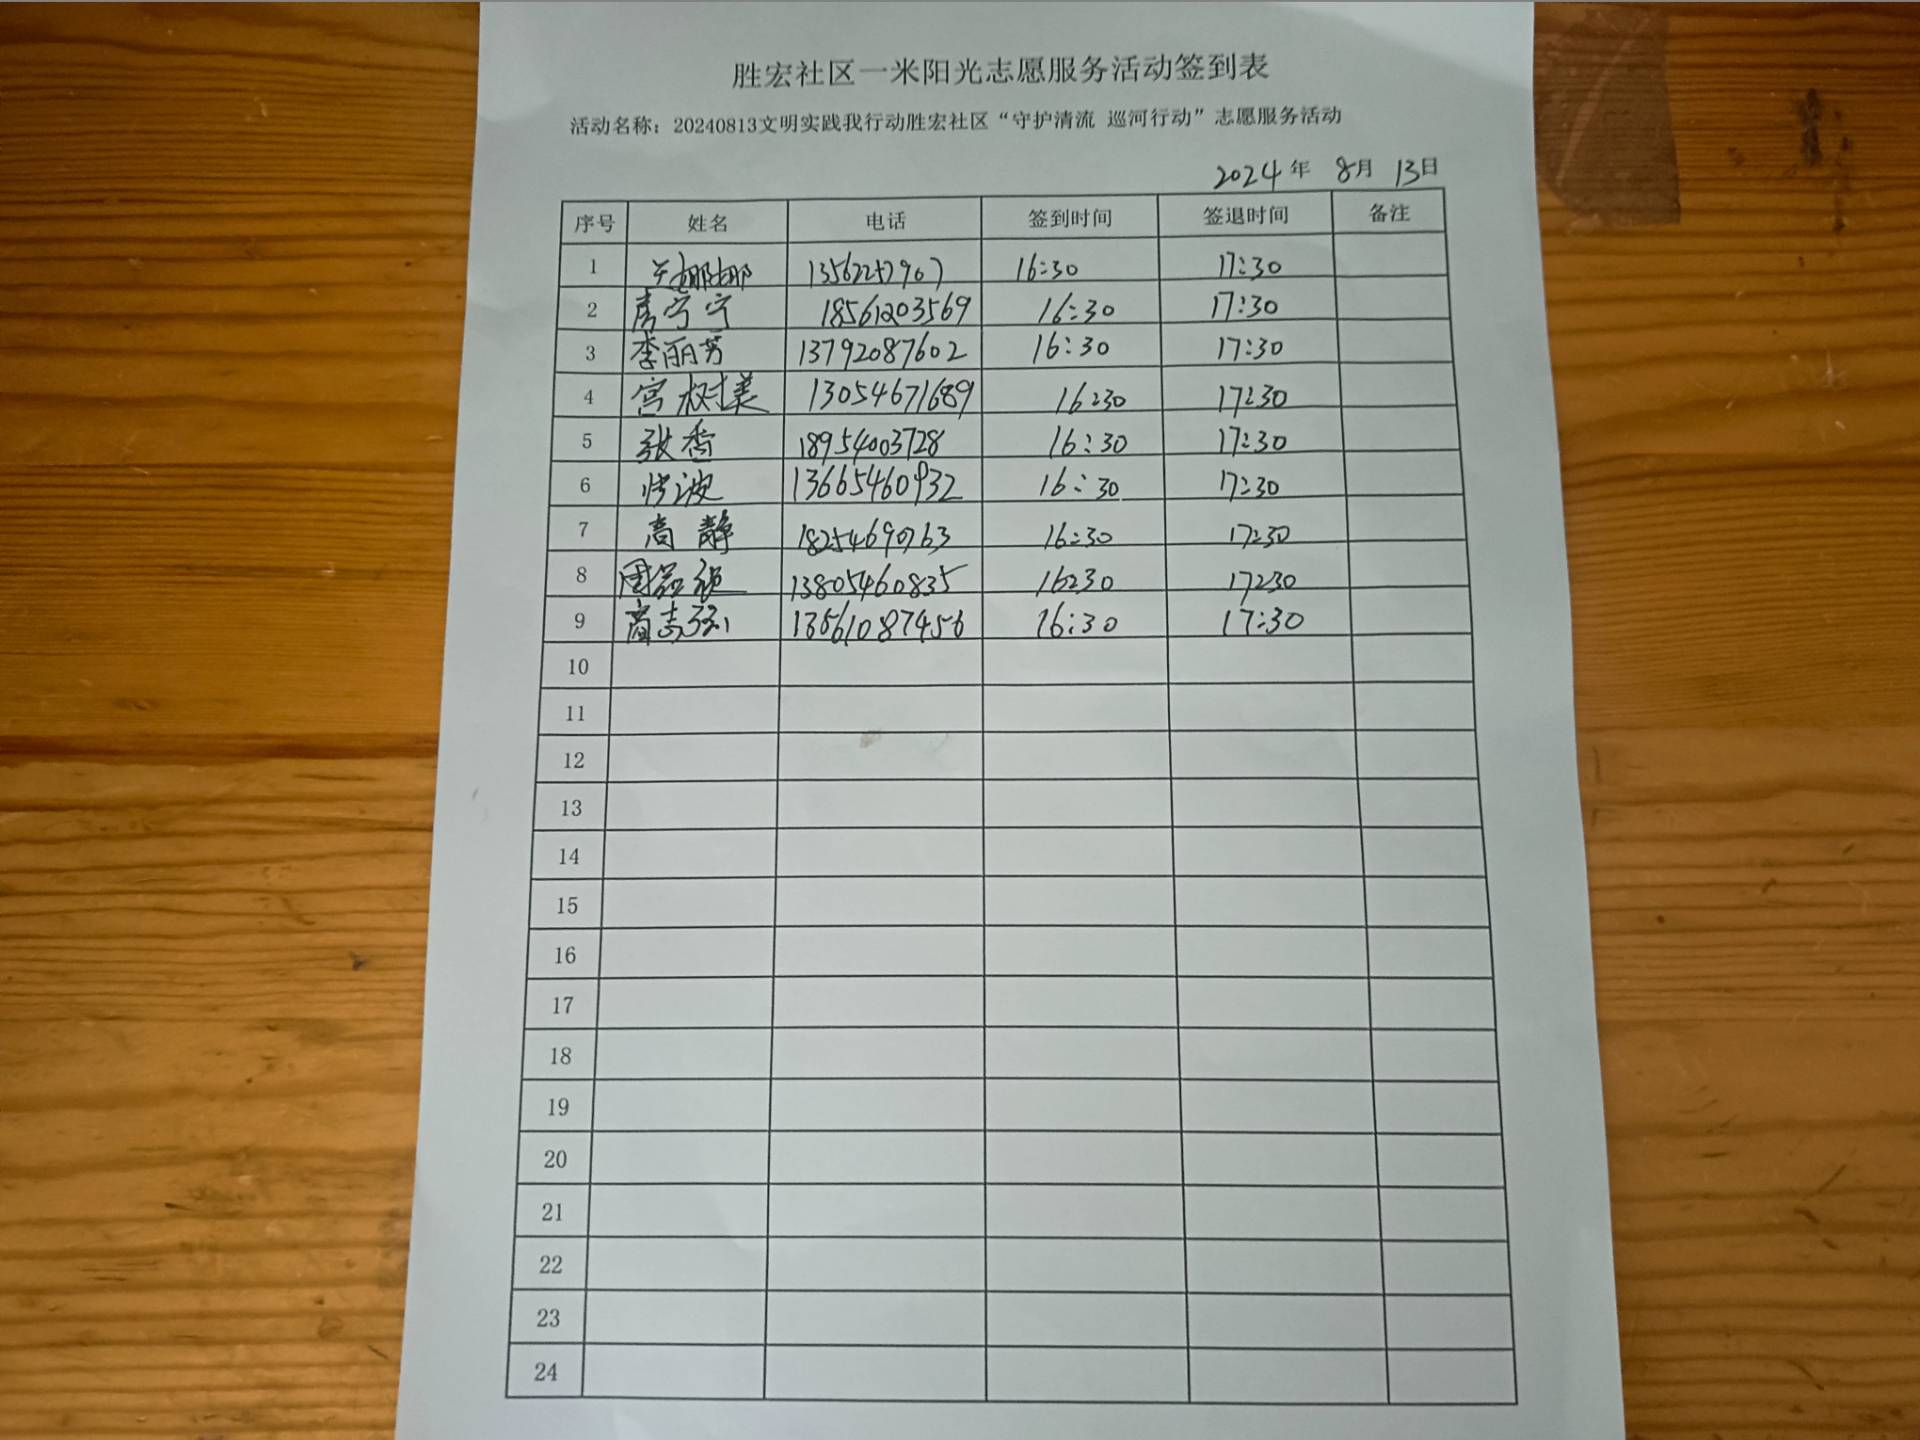 胜宏社区一米阳光志愿服务活动签到表
活动名称：20240813文明实践我行动胜宏社区“守护清流 巡河行动”志愿服务活动
2024 年 8月 13日
序号 姓名 电话 签到时间 签退时间 备注
1 娜娜 16:30 17:30
2 宁宁 18561203569 16:30 17:30
3 李丽芳 13792087602 16:30 17:30
4 宫树美 13054671689 16:30 17:30
5 张香 18954003728 16:30 17:30
6 波 13665460932 16:30 17:30
7 高静 18254690763 16:30 17:30
8 13805460835 16:30 17:30
9 商志强 13561087456 16:30 17:30
10
11
12
13
14
15
16
17
18
19
20
21
22
23
24